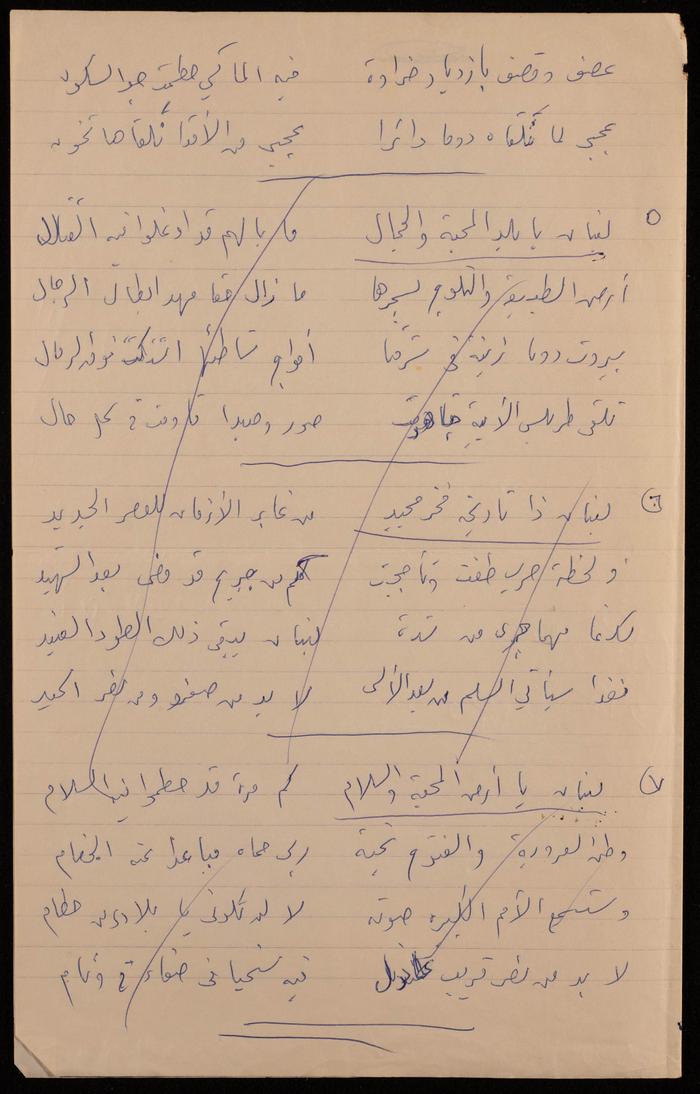 عصف وقصف بازدياد ضراوة فيه الما كي حطمت جو السكون
عجبي لما تلقاه دوما دائرا عجبي من الأقدا تلقاها تخون
٥ لبنان يا بلد المحبة والجمال ما بالهم قد اوغلوا فيه القتال
أرض الطبيعة والثلوج بسحرها ما زال حقا مهد ابطال الرجال
بيروت دوما زينة في شرقنا أمواج شاطئها فوق الرمال
تلقى طرابلس الأبية صور وصيدا قاومت في كل حال
٦ لبنان ذا تاريخه فخر مجيد من غابر الأزمان للعصر الجديد
ولحظة حرب طغت وتأججت كم من جريح قد قضى بعد الشهيد
لكنما مهما جرى من شدة لبنان يبقى ذلك الطود العنيد
فغدا سيأتي السلم من بعد الألى لا بد من صفو ومن نصر اكيد
٧ لبنان يا أرض المحبة والسلام كم مرة قد حطموا فيه السلام
وطن العروبة والفتوح تحية ربي حماه مباعدا عنه الخصام
وستسمع الأمم الكبيرة صوته لا لن تكوني يا بلادي من حطام
لا بد من نصر قريب فيه سنحيا في صفاء في وئام